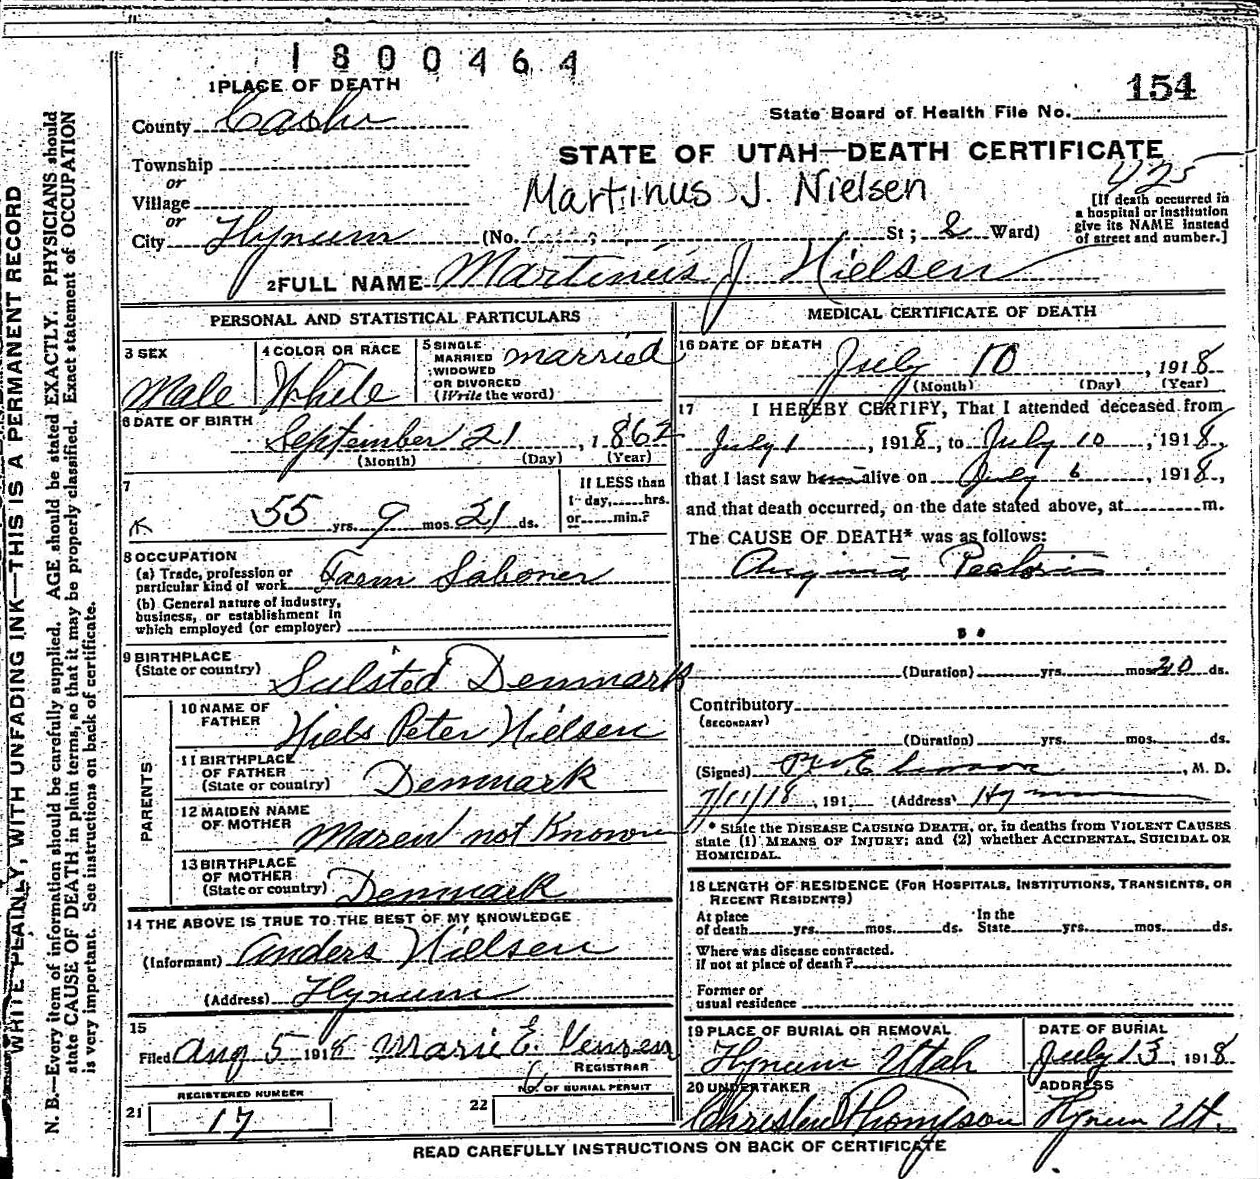 1800464
154
1 PLACE OF DEATH
State Board of Health File No.
County Cashe
STATE OF UTAH—DEATH CERTIFICATE
Township
or
Village
Martinus J. Nielsen
425
[If death occurred in
a hospital or institution
give its NAME instead
of street and number.]
or
City Hyrum (No. St; 2 Ward)
2 FULL NAME Martinus J Nielsen
PERSONAL AND STATISTICAL PARTICULARS
3 SEX
Male
4 COLOR OR RACE
White
5 SINGLE
MARRIED
WIDOWED
OR DIVORCED
(Write the word)
married
6 DATE OF BIRTH
September 21, 1862
(Month) (Day) (Year)
7
55 yrs. 9 mos. 21 ds.
If LESS than
1 day, hrs.
or min.?
8 OCCUPATION
(a) Trade, profession or
particular kind of work Farm Laborer
(b) General nature of industry,
business, or establishment in
which employed (or employer)
9 BIRTHPLACE
(State or country) Sulsted Denmark
PARENTS
10 NAME OF
FATHER Niels Peter Nielsen
11 BIRTHPLACE
OF FATHER
(State or country) Denmark
12 MAIDEN NAME
OF MOTHER Maren not Known
13 BIRTHPLACE
OF MOTHER
(State or country) Denmark
14 THE ABOVE IS TRUE TO THE BEST OF MY KNOWLEDGE
(Informant) Anders Nielsen
(Address) Hyrum
15
Filed Aug 5 1918 Marie E.
REGISTRAR
REGISTERED NUMBER
21 17
NO. OF BURIAL PERMIT
22
MEDICAL CERTIFICATE OF DEATH
16 DATE OF DEATH
July 10, 1918
(Month) (Day) (Year)
17 I HEREBY CERTIFY, That I attended deceased from
July 1, 1918, to July 10, 1918,
that I last saw alive on July 6, 1918,
and that death occurred, on the date stated above, at m.
The CAUSE OF DEATH* was as follows:
Angina Pectoris
(Duration) yrs. mos. 20 ds.
Contributory
(SECONDARY)
(Duration) yrs. mos. ds.
(Signed) , M. D.
7/11/18, 191 (Address) Hyrum
* State the DISEASE CAUSING DEATH, or, in deaths from VIOLENT CAUSES
state (1) MEANS OF INJURY; and (2) whether ACCIDENTAL, SUICIDAL OR
HOMICIDAL.
18 LENGTH OF RESIDENCE (FOR HOSPITALS, INSTITUTIONS, TRANSIENTS, OR
RECENT RESIDENTS)
At place
of death yrs. mos. ds.
In the
State yrs. mos. ds.
Where was disease contracted.
if not at place of death?
Former or
usual residence
19 PLACE OF BURIAL OR REMOVAL
Hyrum Utah
DATE OF BURIAL
July 13 1918
20 UNDERTAKER
Thompson
ADDRESS
Hyrum Ut.
READ CAREFULLY INSTRUCTIONS ON BACK OF CERTIFICATE
WRITE PLAINLY, WITH UNFADING INK—THIS IS A PERMANENT RECORD
N. B.—Every item of information should be carefully supplied. AGE should be stated EXACTLY. PHYSICIANS should
state CAUSE OF DEATH in plain terms, so that it may be properly classified. Exact statement of OCCUPATION
is very important. See instructions on back of certificate.